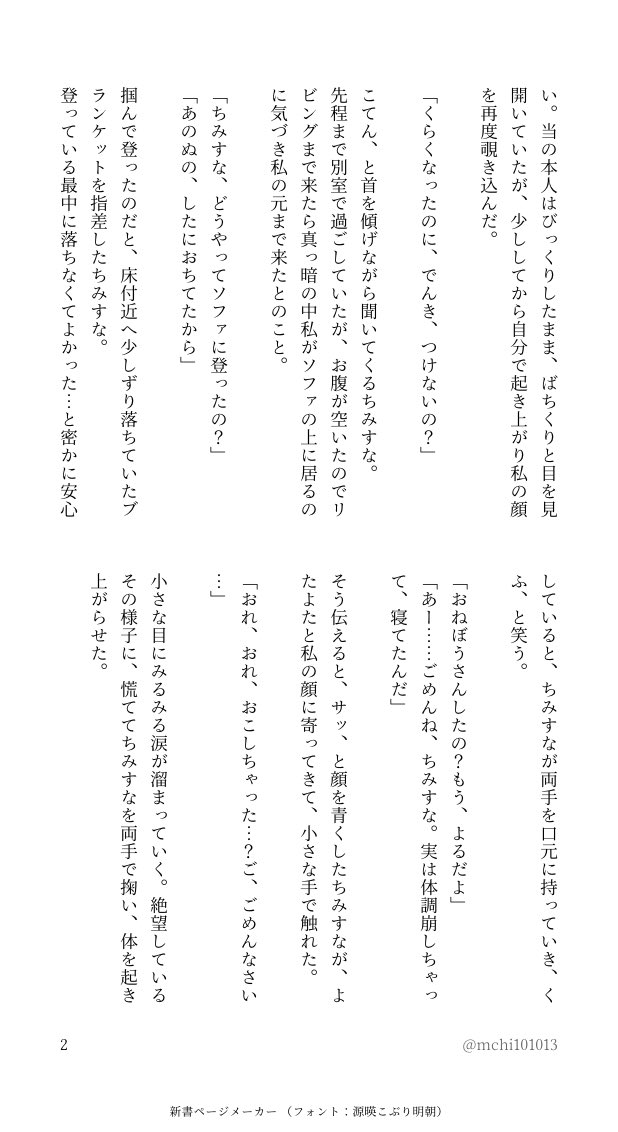 い。当の本人はびっくりしたまま、ぱちくりと目を見
開いていたが、少ししてから自分で起き上がり私の顔
を再度覗き込んだ。
「くらくなったのに、でんき、つけないの？」
こてん、と首を傾げながら聞いてくるちみすな。
先程まで別室で過ごしていたが、お腹が空いたのでリ
ビングまで来たら真っ暗の中私がソファの上に居るの
に気づき私の元まで来たとのこと。
「ちみすな、どうやってソファに登ったの？」
「あのぬの、したにおちてたから」
掴んで登ったのだと、床付近へ少しずり落ちていたブ
ランケットを指差したちみすな。
登っている最中に落ちなくてよかった…と密かに安心
していると、ちみすなが両手を口元に持っていき、く
ふ、と笑う。
「おねぼうさんしたの？もう、よるだよ」
「あー……ごめんね、ちみすな。実は体調崩しちゃっ
て、寝てたんだ」
そう伝えると、サッ、と顔を青くしたちみすなが、よ
たよたと私の顔に寄ってきて、小さな手で触れた。
「おれ、おれ、おこしちゃった…？ご、ごめんなさい
…」
小さな目にみるみる涙が溜まっていく。絶望している
その様子に、慌ててちみすなを両手で掬い、体を起き
上がらせた。
2
@mchi101013
新書ページメーカー（フォント：源暎こぶり明朝）